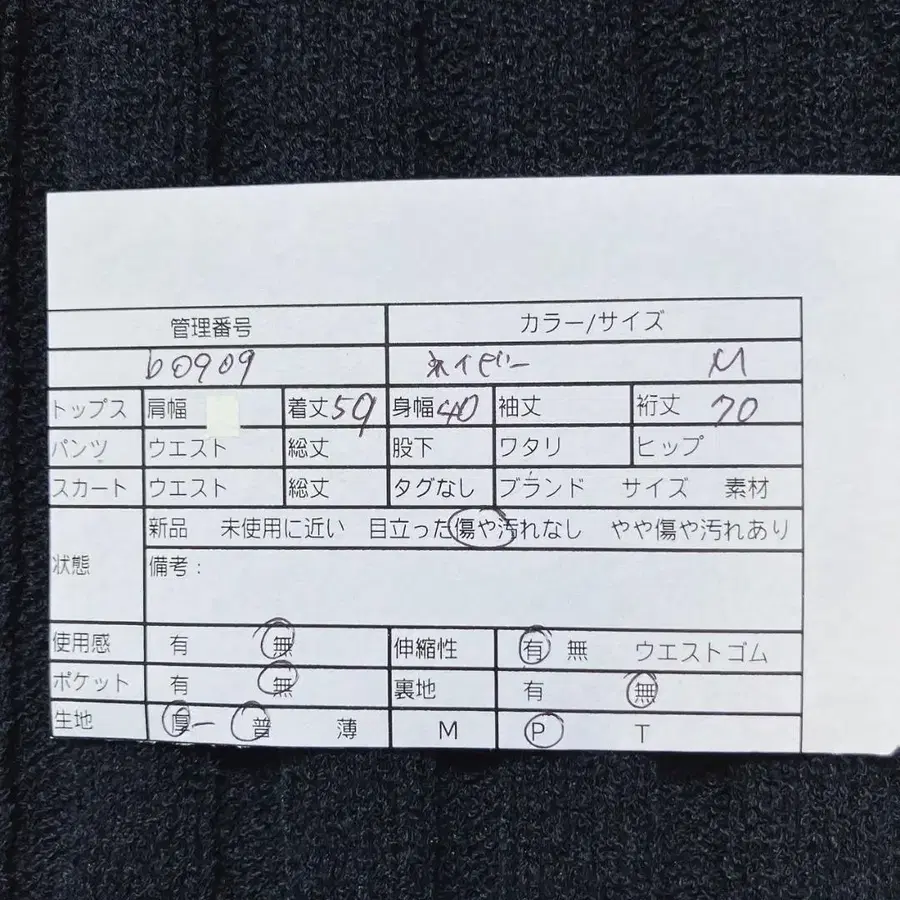 管理番号 カラー/サイズ
b0909 ネイビー M
トップス 肩幅 着丈59 身幅40 袖丈 裄丈 70
パンツ ウエスト 総丈 股下 ワタリ ヒップ
スカート ウエスト 総丈 タグなし ブランド サイズ 素材
状態 新品 未使用に近い 目立った傷や汚れなし やや傷や汚れあり
備考：
使用感 有 無 伸縮性 有 無 ウエストゴム
ポケット 有 無 裏地 有 無
生地 厚ー 普 薄 M P T